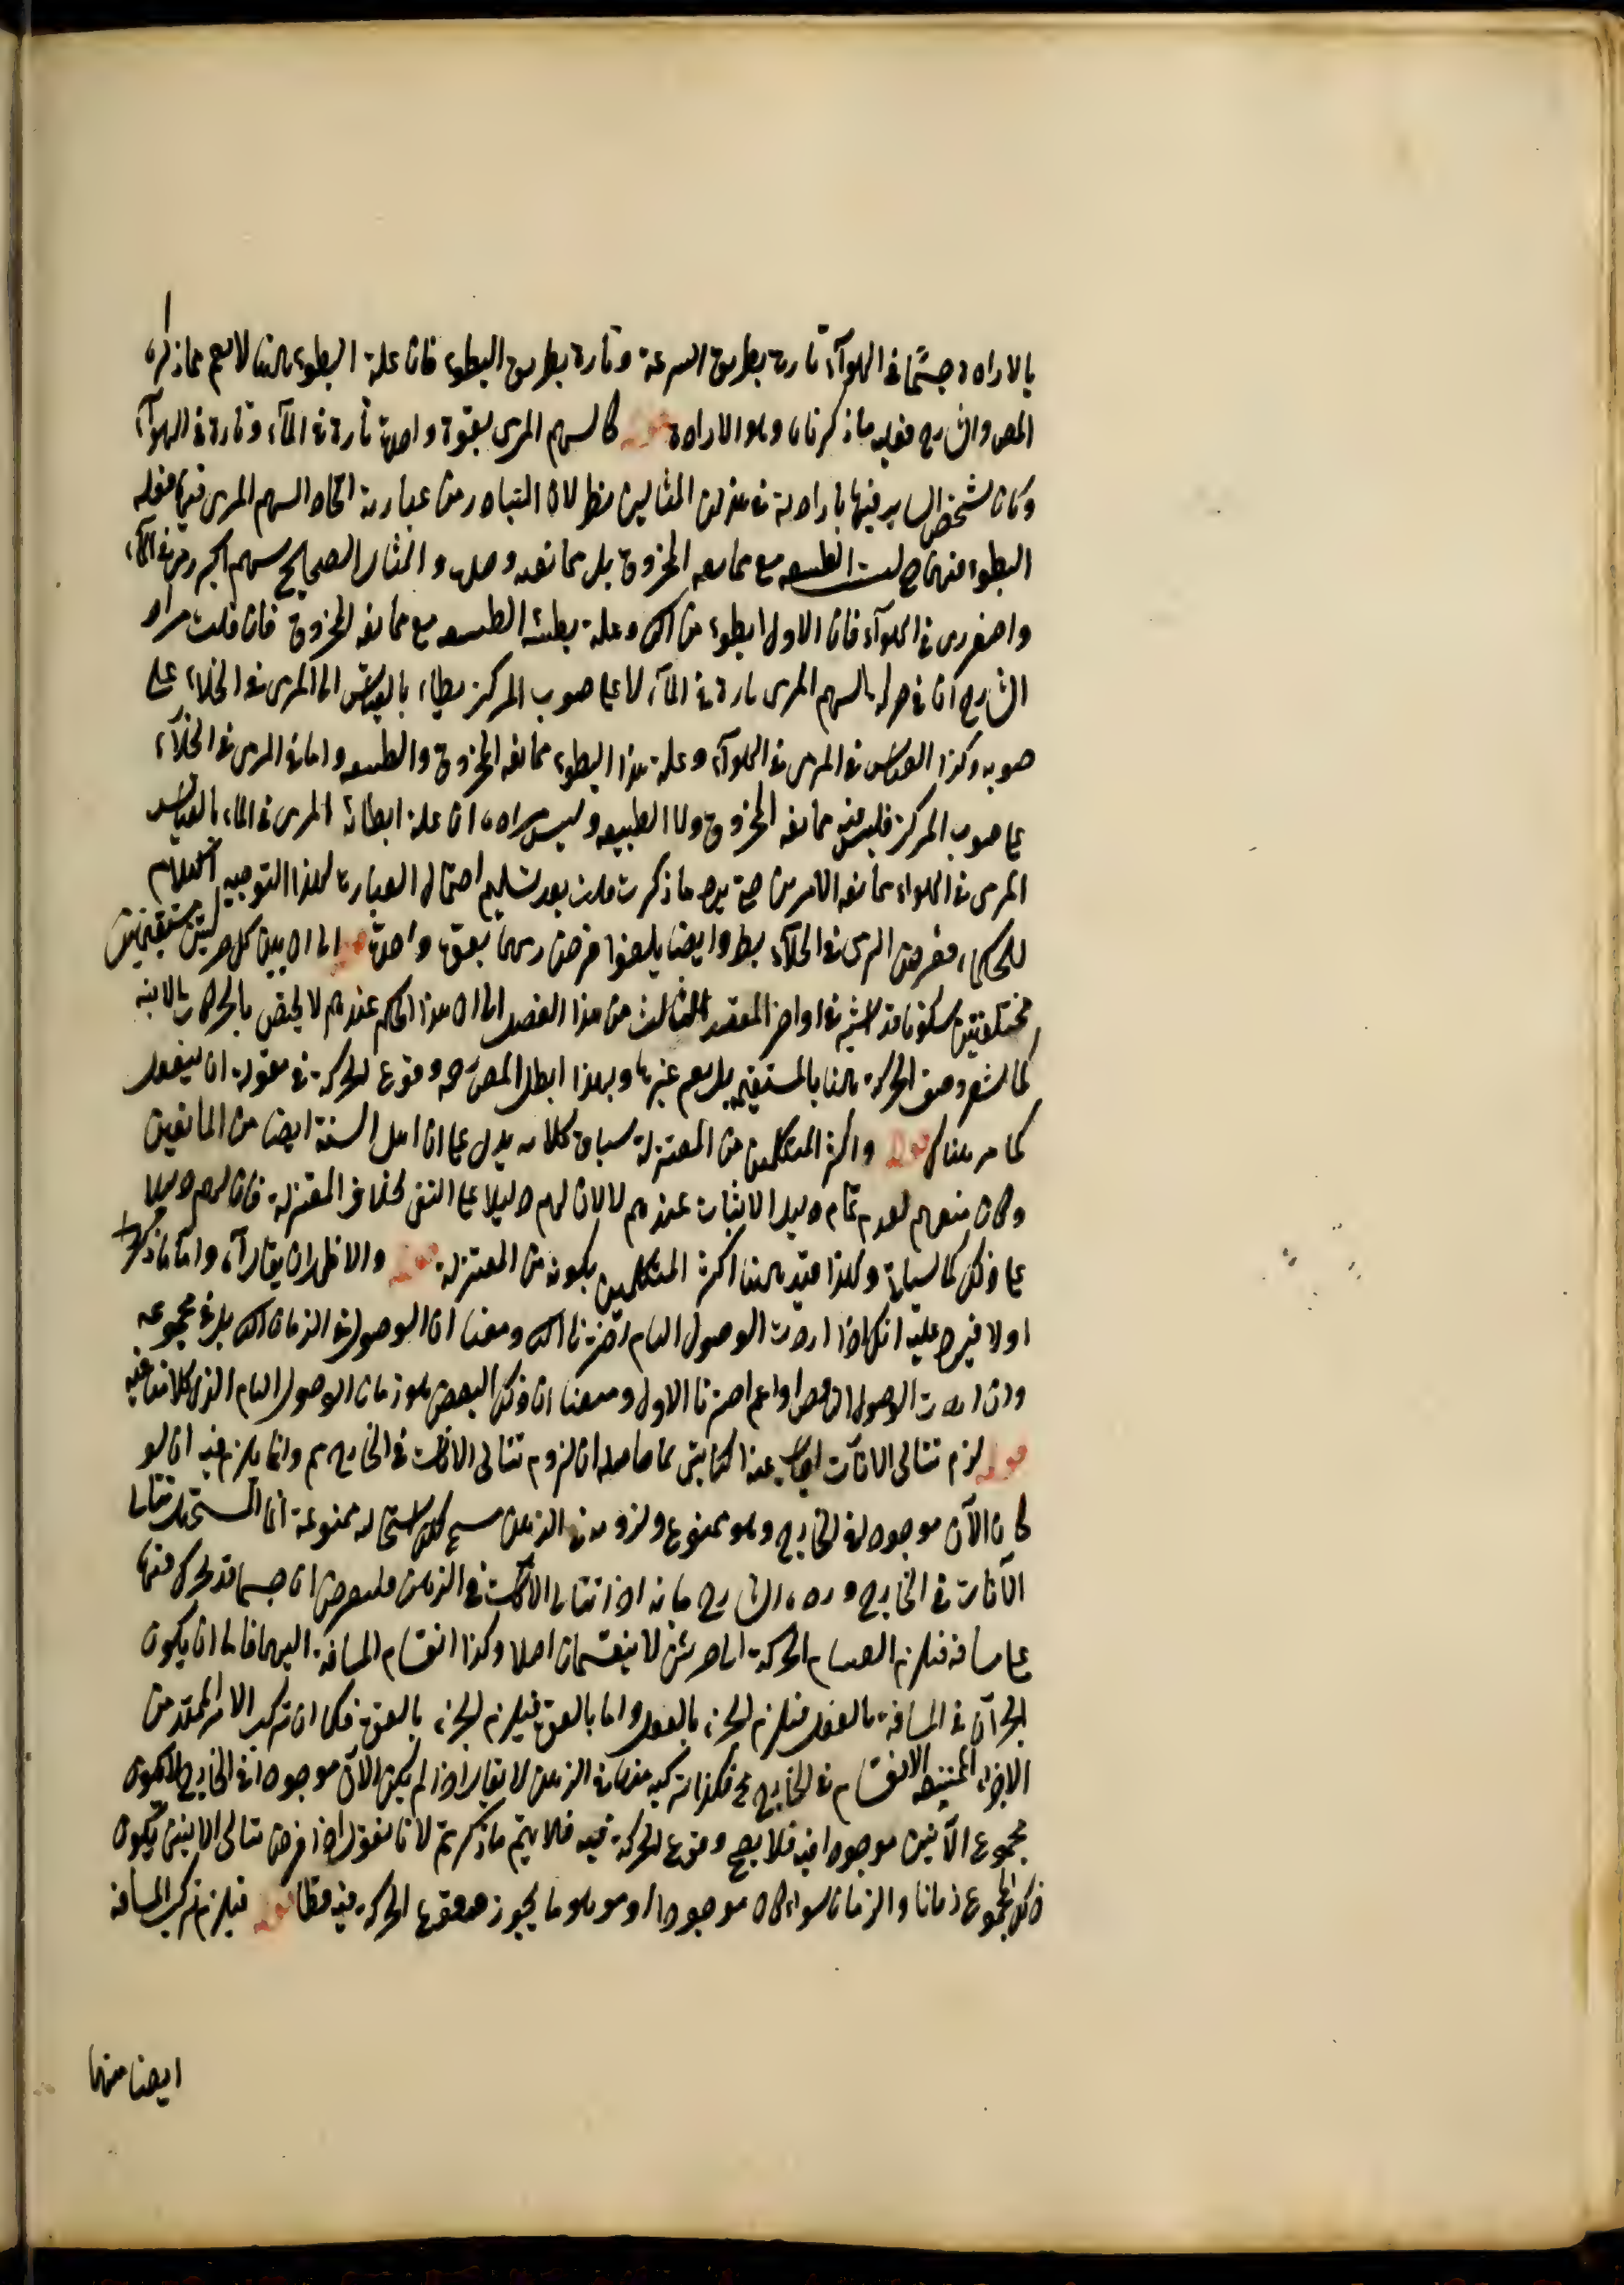 بالاراده جسما فى الهوآء تارة بطريق السرعة وتارة بطريق البطوء فان علة البطوء هنا لا يعم ماذكره
المص والشارح ففيه ما ذكرنا وهو الارادة قوله كالسهم المرمى بقوة واحدة تارة فى المآء وتارة فى الهوآء
وكالشخص الساير فيهما بارادته فى هذين المثالين نظر لان المتبادر من عبارته اتحاد السهم المرمى فيهما فعلة
البطوء فيهما ليست الطبيعه مع ممانعه المخروق بل ممانعه وحدها والمثال الصحيح سهم اكبر رمى فى المآء
واصغر رمى فى الهوآء فان الاول ابطوء من الثانى وعلة بطئه الطبيعه مع ممانعه المخروق فان قلت مراد
الشارح ان فى حركة السهم المرمى تارة فى المآء لا على صوب المركز بطاء بالقياس الى المرمى فى الخلاء على
صوبه وكذا القياس فى المرمى فى الهوآء وعلة هذا البطوء ممانعه المخروق والطبيعه واما فى المرمى فى الخلآء
على صوب المركز فليس فيه ممانعه المخروق ولا الطبيعه وليس مراده ان علة ابطائه المرمى فى الماء بالقياس
المرمى فى الهواء ممانعه الامرين حتى يرد ما ذكرت قلت بعد تسليم احتمال العبارة لهذا التوجيه الكلام
للحكماء ففرض المرمى فى الخلآء بط وايضا يلغوا فرض رميهما بقوة واحدة قوله الى ان بين كل حركتين مستقيمتين
مختلفتين سكونا قد اشير فى اواخر المقصد الثالث من هذا الفصل الى ان هذا الحكم عندهم لا يختص بالحركات الاينيه
كما يشعر وصف الحركة هنا بالمستقيم بل يعم غيرها وبهذا ابطل المص رحه وقوع الحركة فى مقولة ان ينفعل
كما مر هناك قوله واكثر المتكلمين من المعتزلة سياق كلامه يدل على ان اهل السنة ايضا من المانعين
وكان منعهم لعدم تمام دليل الاثبات عندهم لا لان لهم دليلا على النفى بخلاف المعتزلة فان لهم دليلا
على ذلك كما سيأتى ولهذا قيد هنا اكثر المتكلمين بكونه من المعتزلة قوله والاظهر ان يقال آه واما ما ذكره
اولا فيرد عليه انك اذا اردت الوصول التام اخترنا الثانى ومعنا ان الوصول فى الزمان الثانى بل فى مجموعه
وان اردت الوصول الناقص او اعم اخترنا الاول ومعنا ان ذلك البعض هو زمان الوصول التام الذى كلامنا فيه
قوله لزم تتالى الانات اجاب عنه الكاتبى بما حاصله ان لزوم تتالى الانات فى الخارج مم وانما يلزم فيه ان لو
كان الآن موجودا فى الخارج وهو ممنوع ولزومه فى الذهن مسلم لكن استحاله ممنوعة انما المستحيل تتالى
الآنات فى الخارج ورده الشارح بانه اذا تتالى الانات فى الذهن فلنفرض ان جسما قد تحرك فيهما
على مسافه فيلزم انقسام الحركة الى جزئين لا ينقسمان اصلا وكذا انقسام المسافة اليهما فاما ان يكون
الجزآن فى المسافة بالفعل فيلزم الجزء بالفعل واما بالقوة فيلزم الجزء بالقوة فكما ان تركب الامر الممتد من
الاجزاء الممتنعه الانقسام فى الخارج مح فكذا تركبه منها فى الذهن لا يقال اذا لم يكن الآن موجودا فى الخارج لا يكون
مجموع الآنين موجودا فيه فلا يصح وقوع الحركة فيه فلا يتم ما ذكرتم لانا نقول اذا فرض تتالى الانين يكون
ذلك المجموع زمانا والزمان سواء كان موجودا او موهوما يجوز وقوع الحركة فيه قطعا قوله فيلزم تركب المسافه
ايضا منها